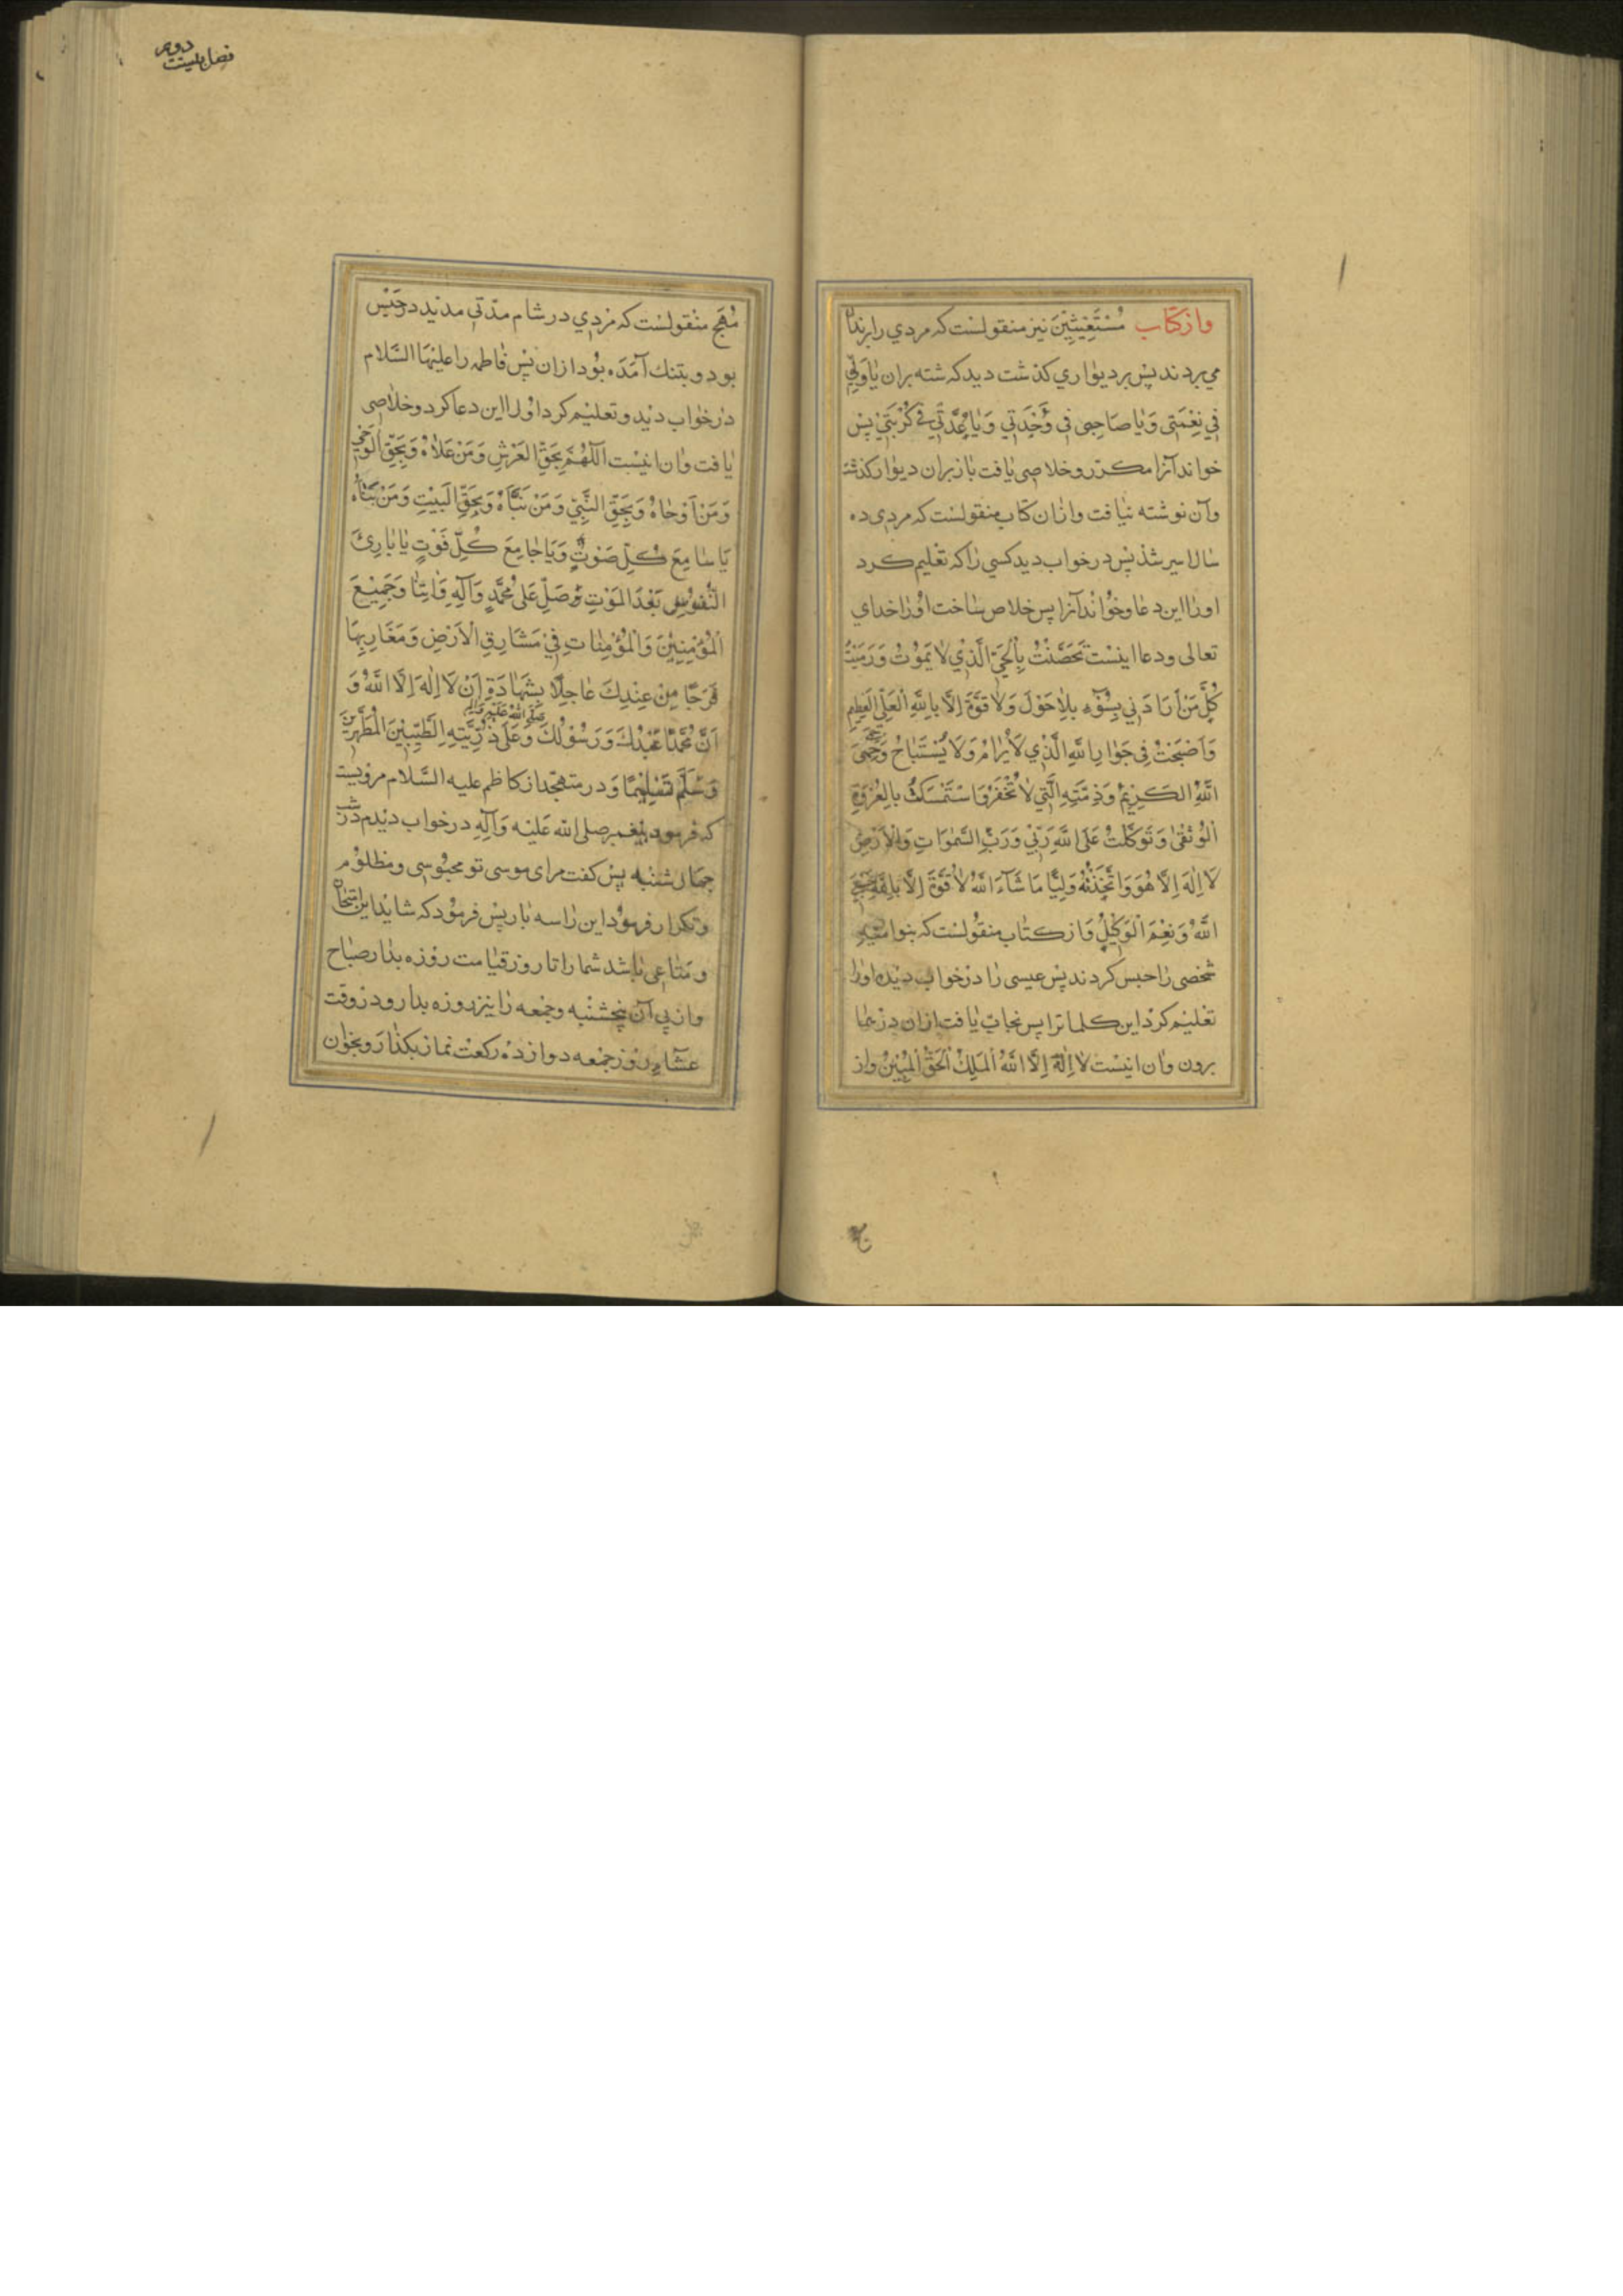 واز كتاب مُسْتَغِيثِيْنَ نيز منقولست كه مردي را بزندان
مي بردند پس بر ديواري كذشت ديد كه نوشته بران يا وَلِيّي
فِي نِعْمَتِي وَيا صَاحِبِي فِي وَحْدَتِي وَيا عُدَّتِي فِي كُرْبَتِي پس
خواند آنرا مكرّر و خلاصى يافت باز بران ديوار كذشت
وآن نوشته نيافت وازان كتاب منقولست كه مردى ده
سال اسير شد پس در خواب ديد كسي را كه تعليم كرد
اورا اين دعا وخواند آنرا پس خلاص ساخت اورا خداي
تعالى ودعا اينست تَحَصَّنْتُ بِالْحَيِّ الَّذِي لا يَمُوْتُ وَرَمَيْتُ
كُلَّ مَنْ اَرَادَنِي بِسُوْءٍ بِلا حَوْلَ وَلا قُوَّةَ اِلَّا بِاللهِ الْعَلِيِّ الْعَظِيمِ
وَاَصْبَحْتُ فِي جَوارِ اللهِ الَّذِي لَا يُرامُ وَلَا يُسْتَبَاحُ وَحِمَى
اللهِ الكَرِيْمِ وَذِمَّتِهِ الَّتِي لا تُخْفَرُ وَاسْتَمْسَكْتُ بِالعُرْوَةِ
الْوُثْقى وَتَوَكَّلْتُ عَلَى اللهِ رَبِّيْ وَرَبِّ السَّمٰوَاتِ وَالْاَرْضِ
لَا اِلٰهَ اِلَّا هُوَ وَاتَّخَذْتُهُ وَلِيًّا مَا شَآءَ اللهُ لا قُوَّةَ اِلَّا بِاللهِ حَسْبِيَ
اللهُ وَنِعْمَ الْوَكِيْلُ وَاز كتاب منقولست كه بنو اميه
شخصى را حبس كردند پس عيسى را در خواب ديد اورا
تعليم كرد اين كلماترا پس نجات يافت ازان درهما
برون وان اينست لا اِلٰهَ اِلَّا اللهُ المَلِكُ الْحَقُّ الْمُبِيْنُ واز
دوم
فصل بيست
مُهَج منقولست كه مردي در شام مدّتى مديد در حبس
بود و بتنك آمَدَه بود ازان پس فاطمه را عليها السَّلام
در خواب ديد و تعليم كرد اورا اين دعا كرد و خلاصى
يافت وان اينست اَللّٰهُمَّ بِحَقِّ العَرْشِ وَمَنْ عَلاهُ وَبِحَقِّ الْوَحْيِ
وَمَنْ اَوْحاهُ وَبِحَقِّ النَّبِيِّ وَمَنْ نَبَّاَهُ وَبِحَقِّ الْبَيْتِ وَمَنْ بَنَاهُ
يَا سامِعَ كُلِّ صَوْتٍ وَيَا جامِعَ كُلِّ فَوْتٍ يا بارِئَ
النُّفُوْسِ بَعْدَ المَوْتِ وَصَلِّ عَلى مُحَمَّدٍ وَآلِهِ وَاٰتِنا وَجَمِيْعَ
الْمُؤْمِنِيْنَ وَالْمُؤْمِناتِ فِيْ مَشَارِقِ الْاَرْضِ وَمَغَارِبِهَا
فَرَجًا مِنْ عِنْدِكَ عاجِلًا بِشَهادَةِ اَنْ لَا اِلٰهَ اِلَّا اللهُ وَ
اَنَّ مُحَمَّدًا عَبْدُكَ وَرَسُوْلُكَ صَلَّى اللهُ عَلَيْهِ وَآلِهِ وَعَلى ذُرِّيَّتِهِ الطَّيِّبِيْنَ الْمُطَهَّرِيْنَ
وَسَلَّمَ تَسْلِيْمًا وَ در متهجد از كاظم عليه السَّلام مرويست
كه فرمود پيغمبر صلى الله عَلَيْه وَآلِهِ در خواب ديدم در شب
چهار شنبه پس كفت مرا اى موسى تو محبوسى و مظلوم
وتكرار فرمود اين را سه بار پس فرمود كه شايد اين امتحان
و متاعى باشد شما را تا روز قيامت روزه بدار صباح
واز پى آن پنجشنبه وجمعه را نيز روزه بدار ودر وقت
عشاء روز جمعه دوازده ركعت نماز بكذار وبخوان